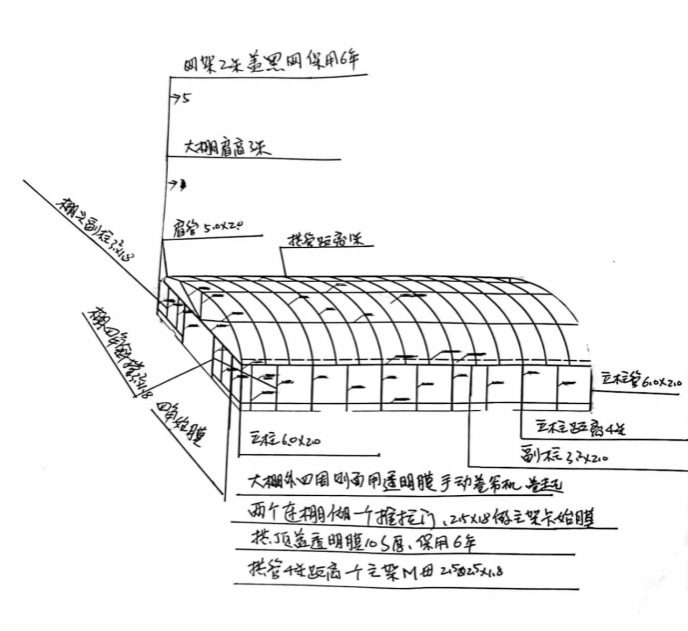 网架2米盖黑网保用6年
→5
大棚肩高3米
肩管50×20
拱管距离1米
棚头副柱32×1.8
棚四角斜撑32×1.8
四角给膜
立柱管60×20
立柱距离4米
副柱32×20
立柱60×20
大棚外四周则面用透明膜手动卷帘机
两个连棚做一个推拉门、25×18做主架卡给膜
拱顶盖透明膜10S厚、保用6年
拱管4米距离一个主架M田25×25×1.8